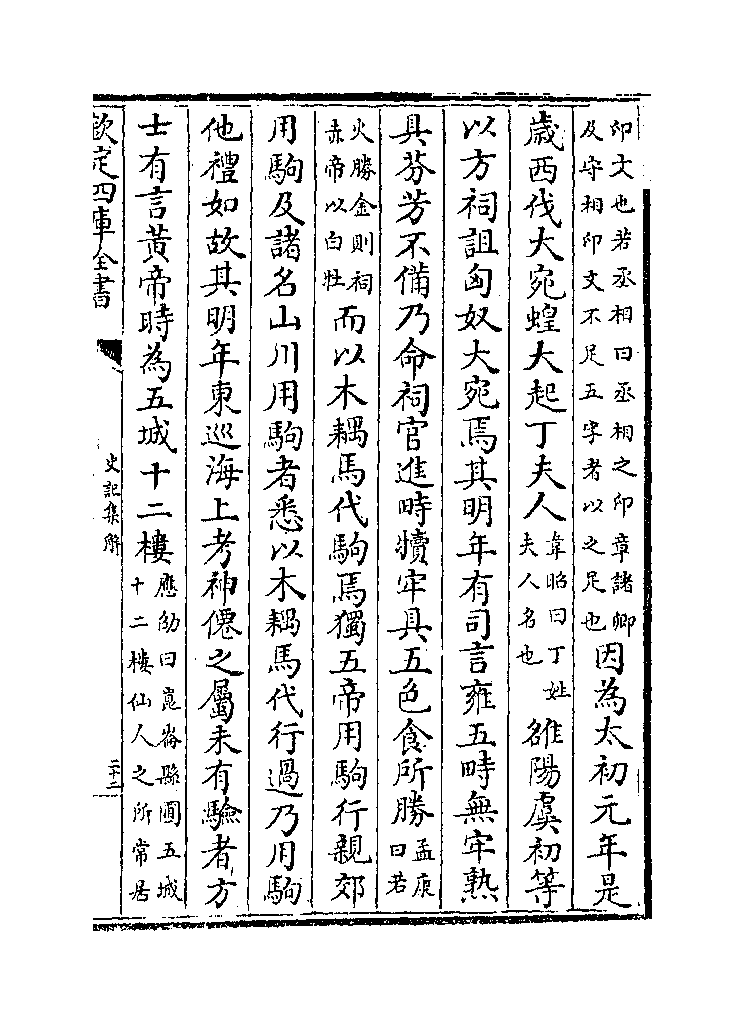 印文也若丞相曰丞相之印章諸卿
及守相印文不足五字者以之足也
因為太初元年是
歲西伐大宛蝗大起丁夫人
韋昭曰丁姓
夫人名也
雒陽虞初等
以方祠詛匈奴大宛焉其明年有司言雍五畤無牢熟
具芬芳不備乃命祠官進畤犢牢具五色食所勝
孟康
曰若
火勝金則祠
赤帝以白牡
而以木耦馬代駒焉獨五帝用駒行親郊
用駒及諸名山川用駒者悉以木耦馬代行過乃用駒
他禮如故其明年東巡海上考神僊之屬未有驗者方
士有言黃帝時為五城十二樓
應劭曰崑崙縣圃五城
十二樓仙人之所常居
欽定四庫全書
史記集解
二十二